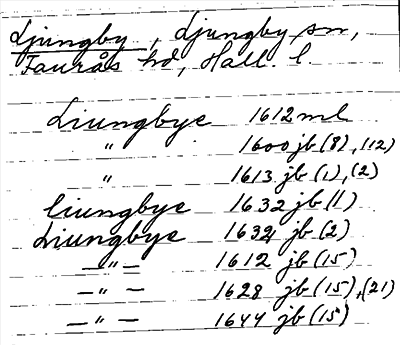 Ljungby, Ljungby sn,
Faurås hd, Hall. l.
Liungbye 1612 ml
" 1600 jb (8), (12)
" 1613 jb (1), (2)
liungbye 1632 jb (1)
Liungbye 1632 jb (2)
—"— 1612 jb (15)
—"— 1628 jb (15), (21)
—"— 1644 jb (15)